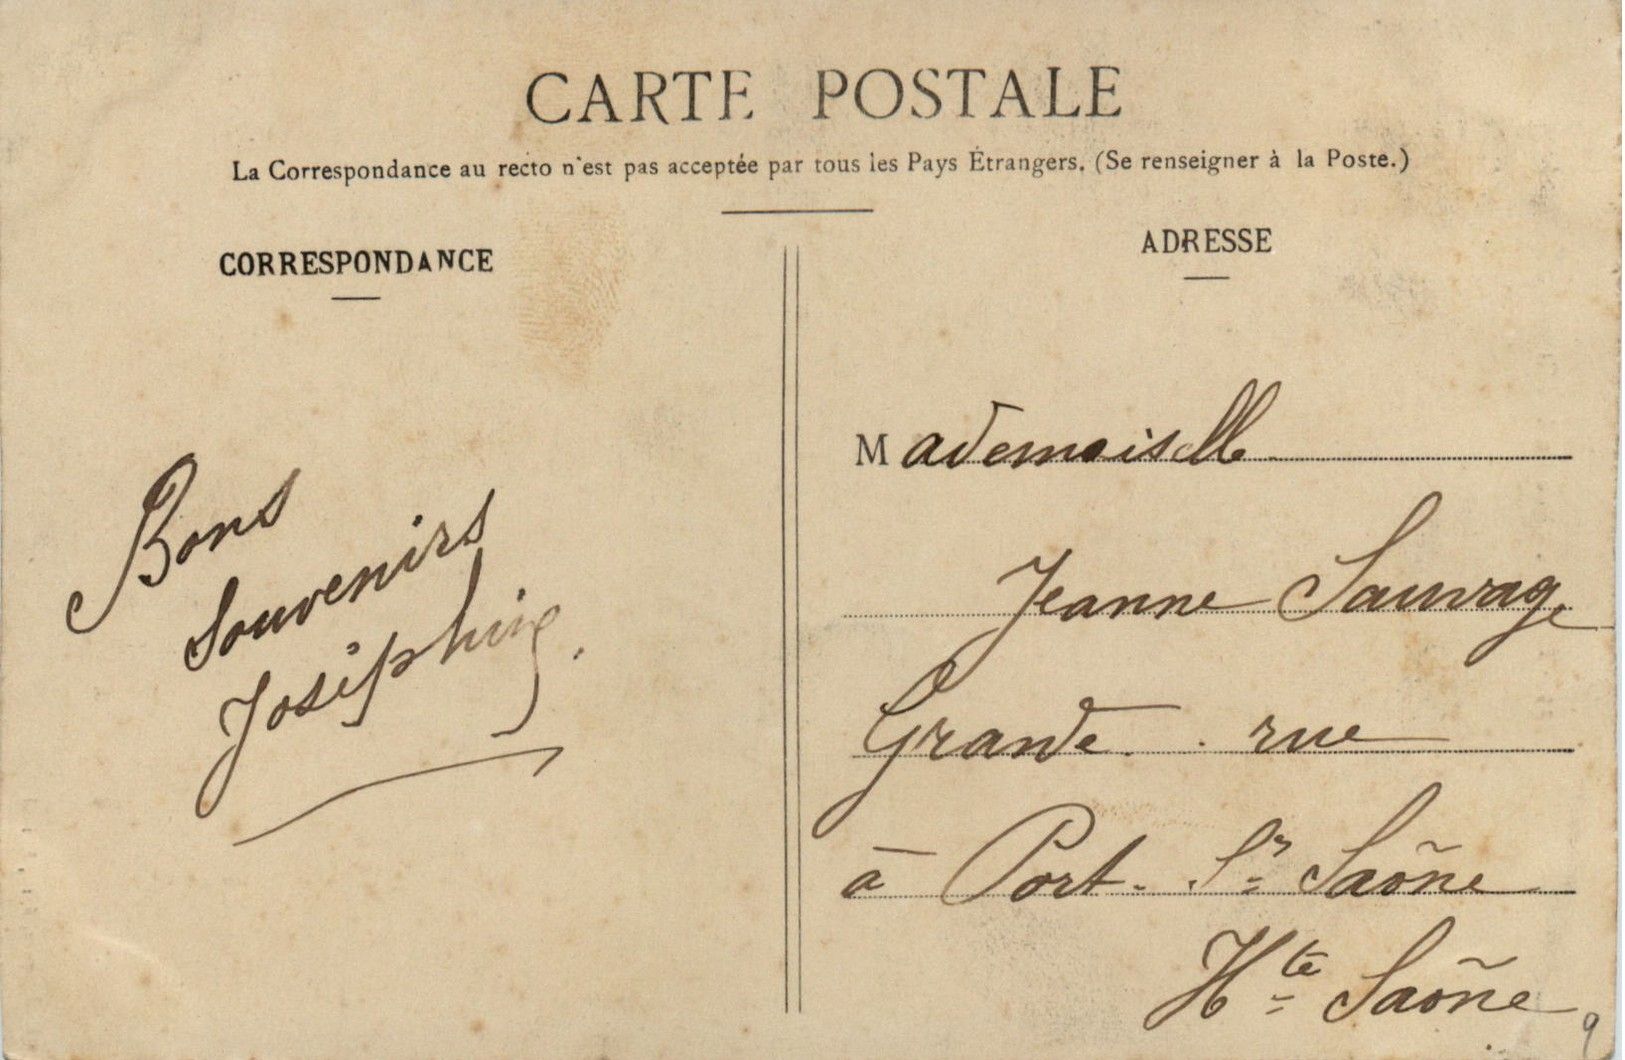 CARTE POSTALE
La Correspondance au recto n'est pas acceptée par tous les Pays Étrangers. (Se renseigner à la Poste.)
CORRESPONDANCE
Bons
Souvenirs
Joséphine.
ADRESSE
Mademoiselle
Jeanne Sauvage
Grande rue
à Port. Sr Saône
Hte Saône
9